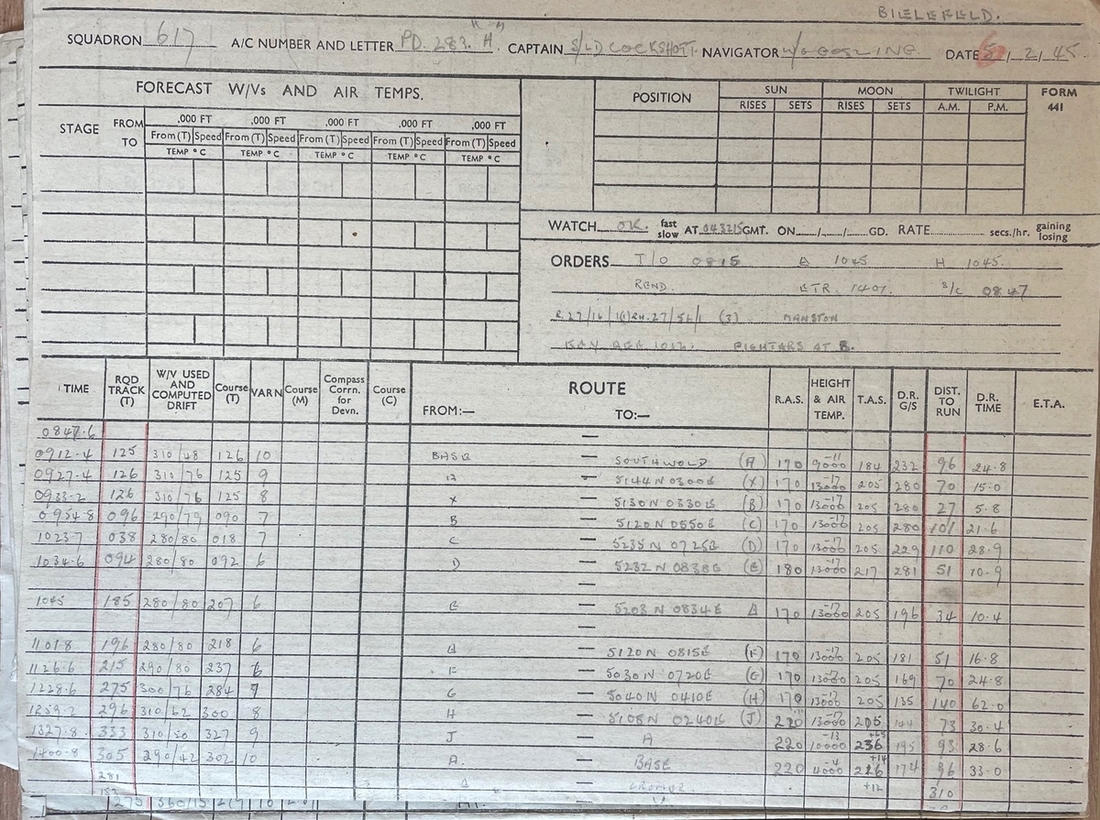 BIELEFELD.
"
SQUADRON 617 A/C NUMBER AND LETTER PD. 283. "A" CAPTAIN S/LD COCKSHOTT. NAVIGATOR W/O GOSLING DATE 6/2/45.
FORECAST W/Vs AND AIR TEMPS.
STAGE FROM TO ,000 FT ,000 FT ,000 FT ,000 FT ,000 FT
From (T) Speed From (T) Speed From (T) Speed From (T) Speed From (T) Speed
TEMP °C TEMP °C TEMP °C TEMP °C TEMP °C
POSITION SUN MOON TWILIGHT FORM 441
RISES SETS RISES SETS A.M. P.M.
WATCH OK. fast slow AT GMT. ON / / GD. RATE secs./hr. gaining losing
ORDERS T/O 0815 A 1045 H 1045.
REND. ETR. 1407. S/C 0847
(3) MANSTON
FIGHTERS AT B.
TIME RQD TRACK (T) W/V USED AND COMPUTED DRIFT Course (T) VARN Course (M) Compass Corrn. for Devn. Course (C) ROUTE FROM:— TO:— R.A.S. HEIGHT & AIR TEMP. T.A.S. D.R. G/S DIST. TO RUN D.R. TIME E.T.A.
0847.6 —
0912.4 125 310/48 126 10 BASE — SOUTHWOLD (A) 170 -11 9000 184 232 96 24.8
0927.4 126 310/76 125 9 — 5144N 0300E (X) 170 -17 13000 205 280 70 15.0
0933.2 126 310/76 125 8 X — 5130N 0330E (B) 170 -17 13000 205 280 27 5.8
0954.8 096 290/79 090 7 B — 5120N 0550E (C) 170 -17 13000 205 280 101 21.6
1023.7 038 280/80 018 7 C — 5235N 0725E (D) 170 -17 13000 205 229 110 28.9
1034.6 094 280/80 092 6 D — 5232N 0838E (E) 180 -17 13000 217 281 51 10.9
1045 185 280/80 207 6 E — 5203N 0834E A 170 -17 13000 205 196 34 10.4
1101.8 196 280/80 218 6 A — 5120N 0815E (F) 170 -17 13000 205 181 51 16.8
1126.6 215 290/80 237 6 F — 5030N 0720E (G) 170 -17 13000 205 169 70 24.8
1228.6 275 300/76 284 7 G — 5040N 0410E (H) 170 -17 13000 205 135 140 62.0
1259.2 296 310/62 300 8 H — 5108N 0240E (J) 13000 205 144 73 30.4
1327.8 333 310/50 327 9 J — A 220 -13 10000 236 195 93 28.6
1400.8 305 290/42 302 10 A. — BASE 220 -4 4000 226 174 96 33.0
281 — +12 310
275 360/15